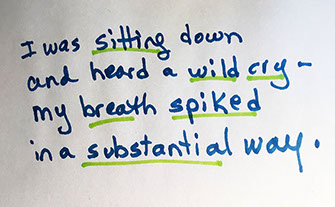 I was sitting down
and heard a wild cry –
my breath spiked
in a substantial way.